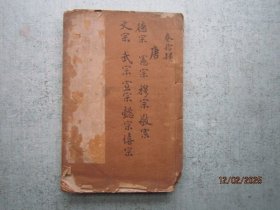 唐
德宗 憲宗 穆宗 敬宗
文宗 武宗 宣宗 懿宗 僖宗
12/02/2025